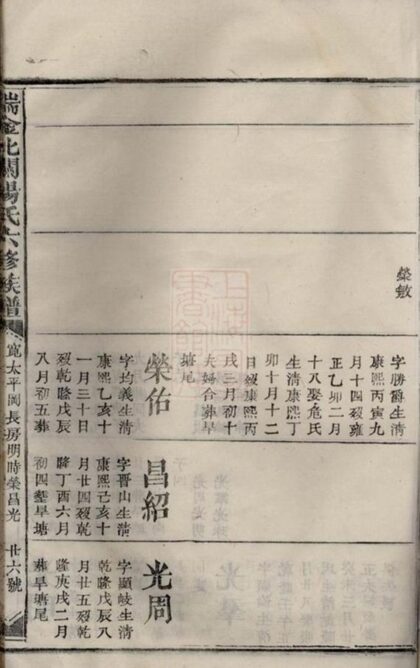 榮敏
字勝爵生清
康熙丙寅九
月十四歿雍
正乙卯二月
十八娶危氏
生清康熙丁
卯十月十二
日歿康熙丙
戌三月初十
夫婦合葬旱
塘尾
榮佑
字均義生清
康熙乙亥十
一月三十日
歿乾隆戊辰
八月初五葬
昌紹
字晉山生清
康熙己亥十
月廿四歿乾
隆丁酉六月
初四葬旱塘
光周
字顯岐生清
乾隆戊辰八
月廿五歿乾
隆庚戌二月
葬旱塘尾
瑞金北關楊氏六修族譜
寬太平岡長房明時榮昌光 廿六號